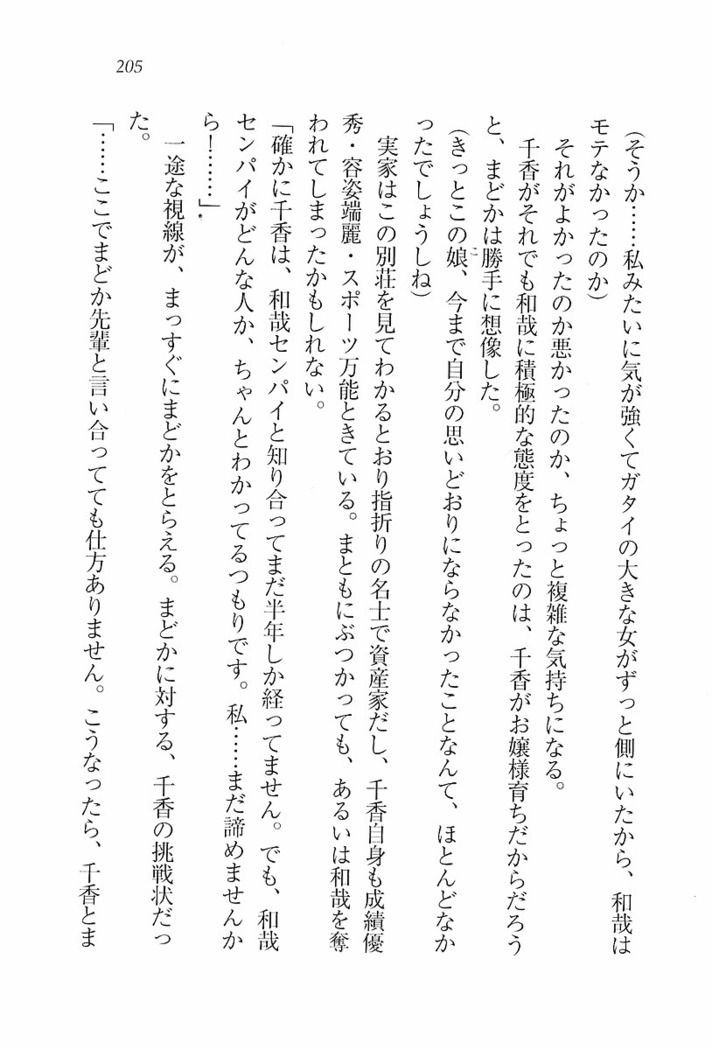 205
(そうか……私みたいに気が強くてガタイの大きな女がずっと側にいたから、和哉は
モテなかったのか)
それがよかったのか悪かったのか、ちょっと複雑な気持ちになる。
千香がそれでも和哉に積極的な態度をとったのは、千香がお嬢様育ちだからだろう
と、まどかは勝手に想像した。
(きっとこの娘、今まで自分の思いどおりにならなかったことなんて、ほとんどなか
ったでしょうしね)
実家はこの別荘を見てわかるとおり指折りの名士で資産家だし、千香自身も成績優
秀・容姿端麗・スポーツ万能ときている。まともにぶつかっても、あるいは和哉を奪
われてしまったかもしれない。
「確かに千香は、和哉センパイと知り合ってまだ半年しか経ってません。でも、和哉
センパイがどんな人か、ちゃんとわかってるつもりです。私……まだ諦めませんか
ら!……」.
一途な視線が、まっすぐにまどかをとらえる。まどかに対する、千香の挑戦状だっ
た。
「……ここでまどか先輩と言い合ってても仕方ありません。こうなったら、千香とま